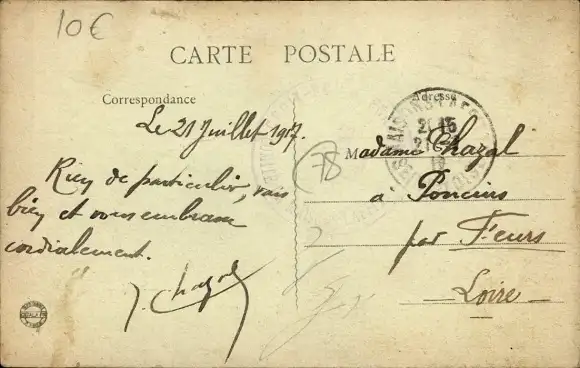 10€
CARTE POSTALE
Correspondance
Adresse
Le 21 Juillet 1917.
78
Madame Chazal
Rien de particulier, vais
à Poncins
bien et vous embrasse
par Feurs
cordialement.
Loire
J. Chazal